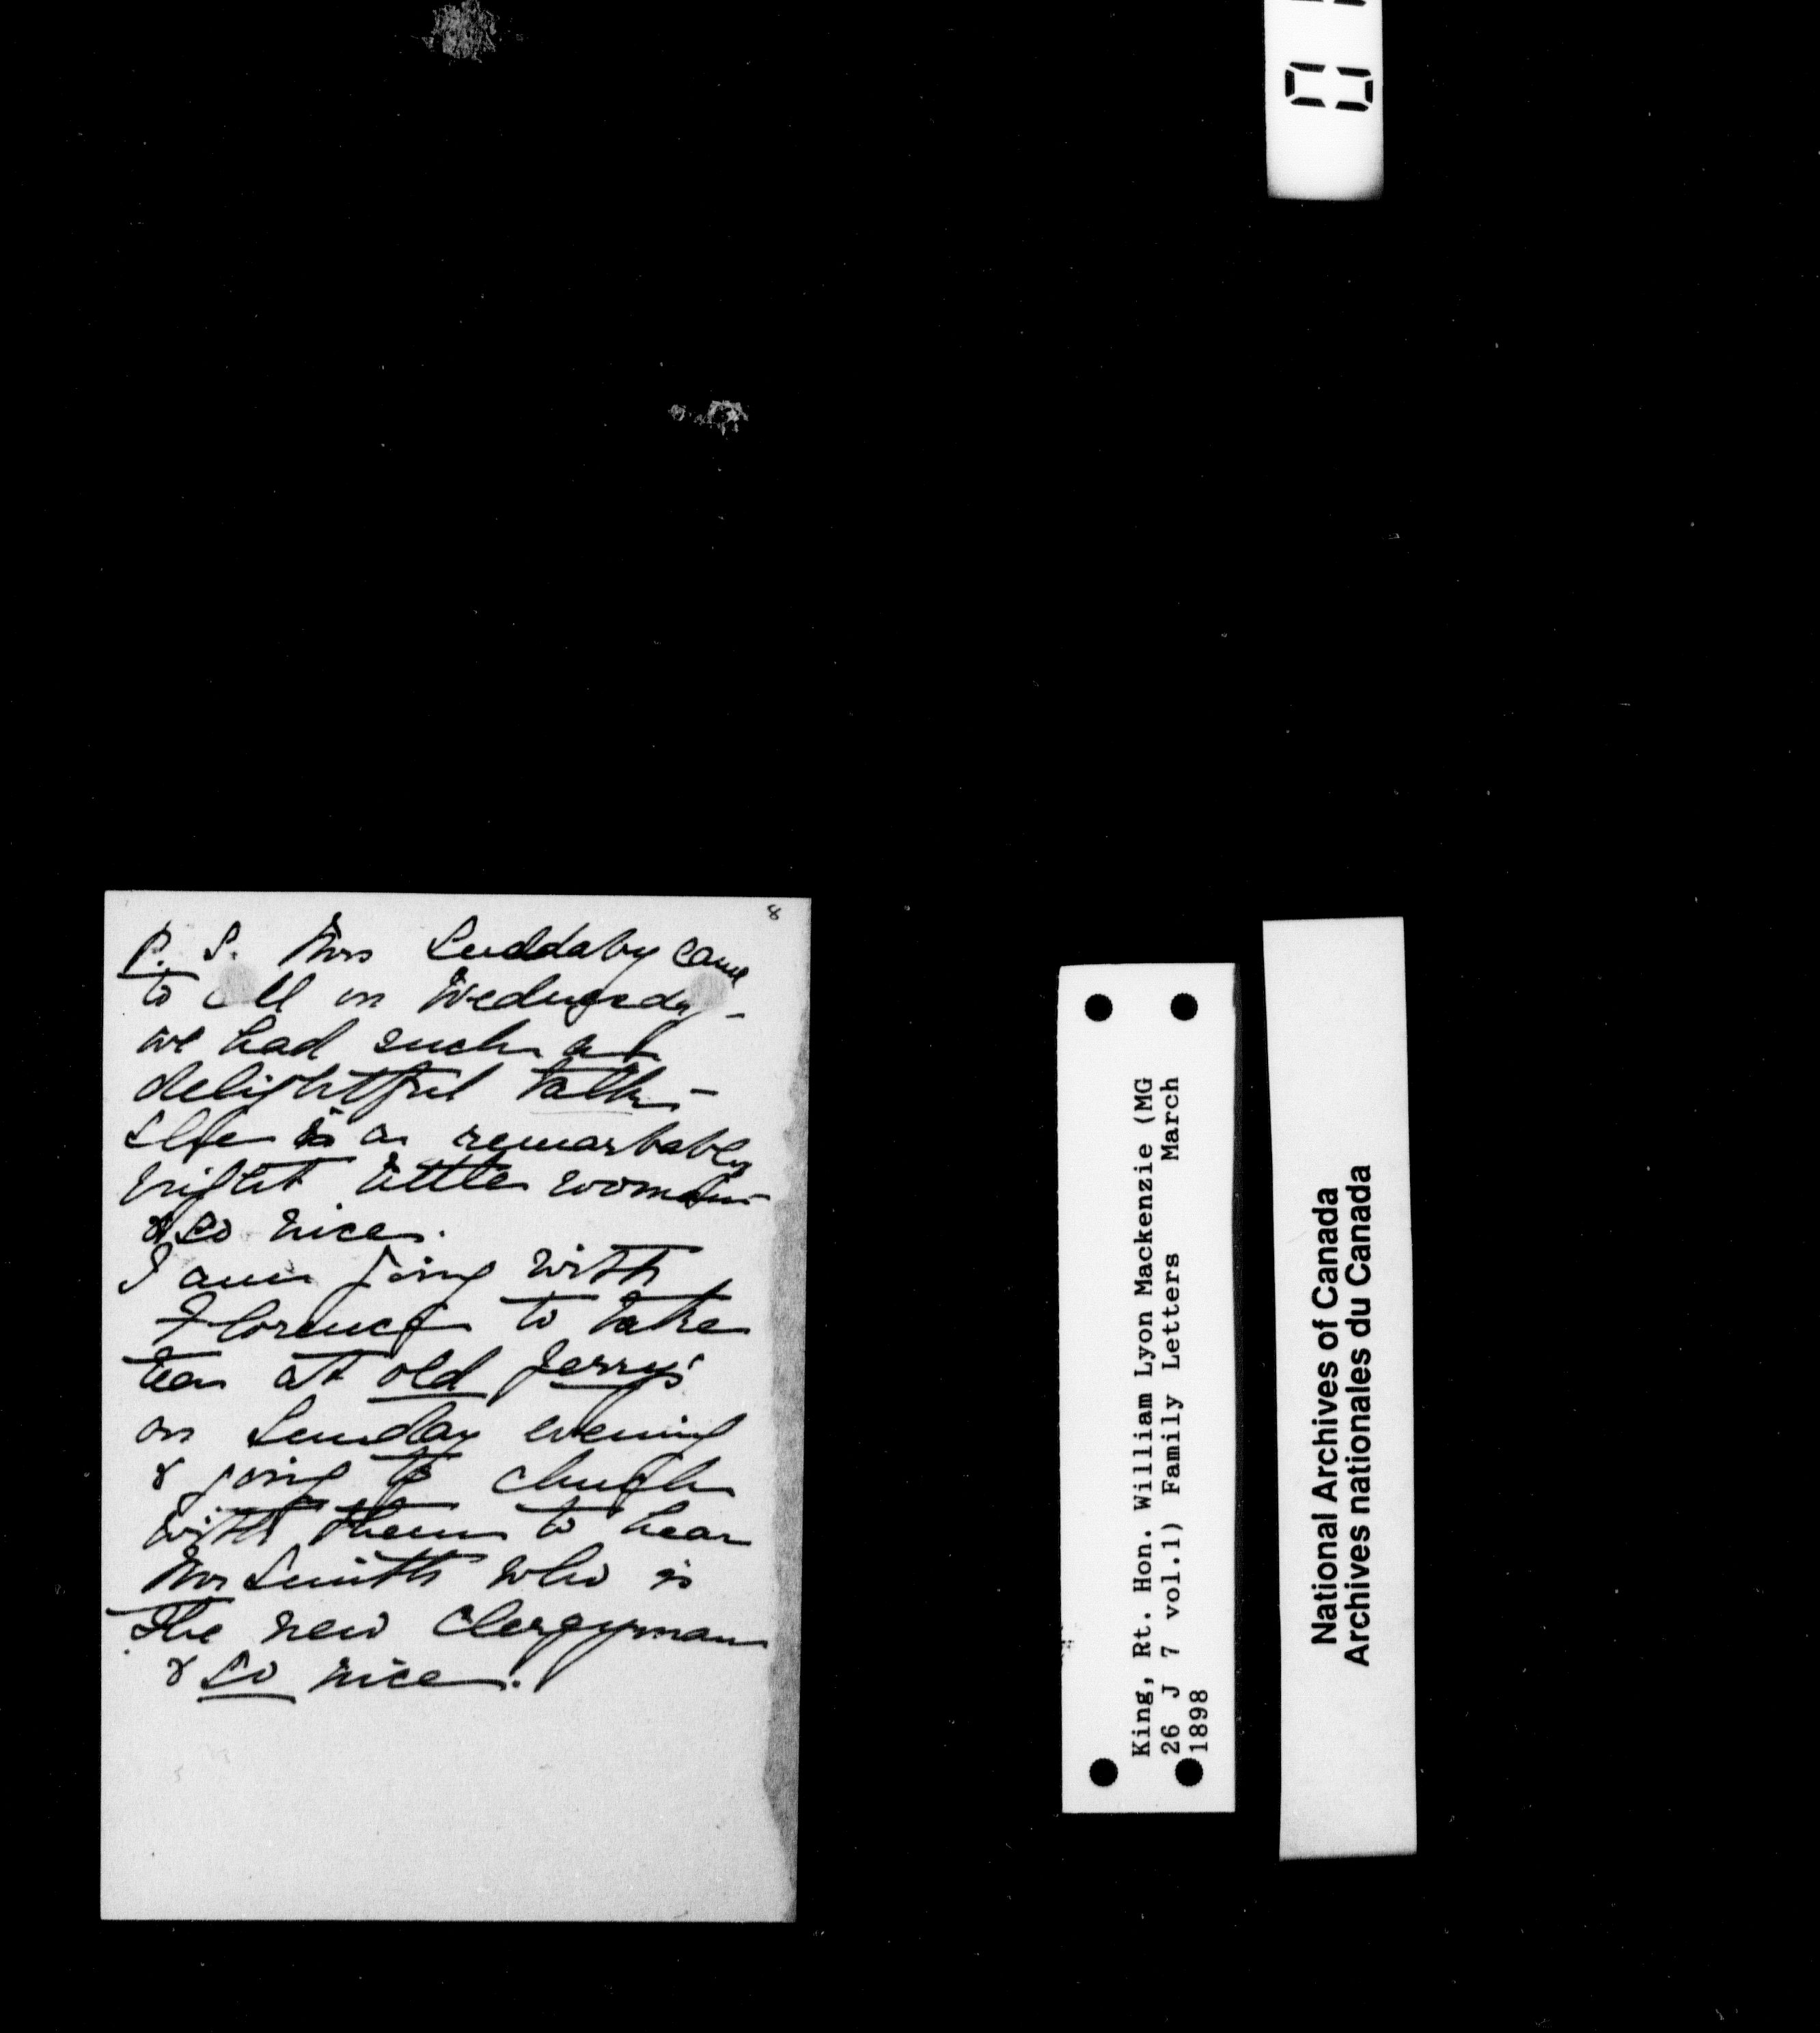 8
P. S. Mrs Suddaby came
to call on Wednesday -
we had such a
delightful talk -
She is a remarkably
bright little woman
& so nice.
I am going with
Florence to take
tea at old Jerry's
on Sunday evening
& going to church
with them to hear
Mr Smith who is
the new clergyman
& so nice.
King, Rt. Hon. William Lyon Mackenzie (MG
26 J 7 vol.1) Family Letters March
1898
National Archives of Canada
Archives nationales du Canada